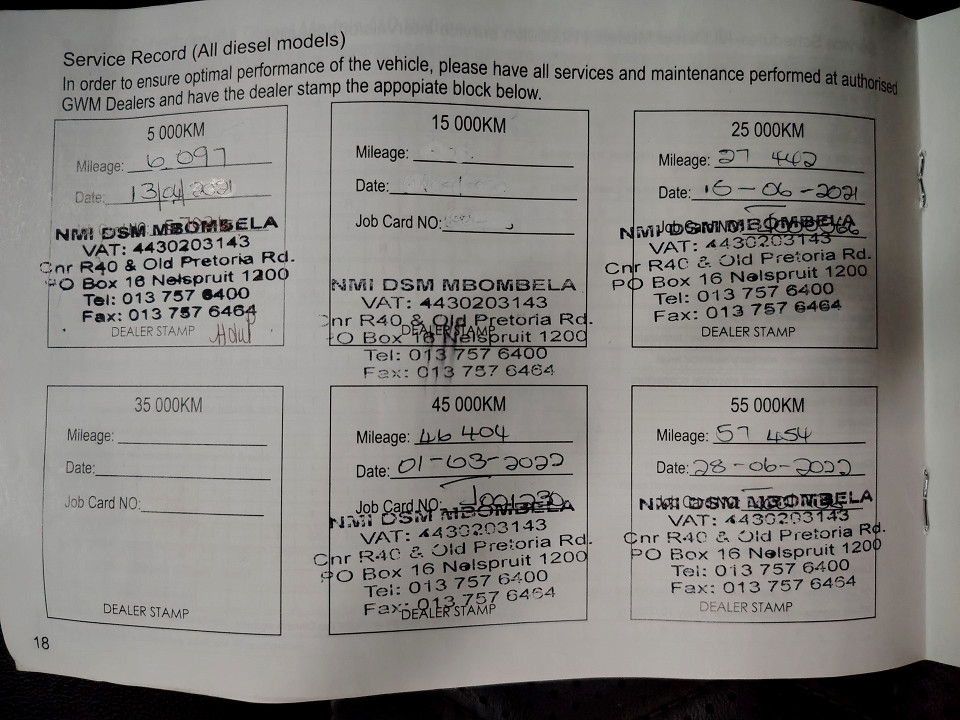 Service Record (All diesel models)
In order to ensure optimal performance of the vehicle, please have all services and maintenance performed at authorised
GWM Dealers and have the dealer stamp the appopiate block below.
5 000KM
Mileage: 6 097
Date: 13/04/2021
NMI DSM MBOMBELA
VAT: 4430203143
Cnr R40 & Old Pretoria Rd.
PO Box 16 Nelspruit 1200
Tel: 013 757 6400
Fax: 013 757 6464
DEALER STAMP
15 000KM
Mileage:
Date:
Job Card NO:
NMI DSM MBOMBELA
VAT: 4430203143
Cnr R40 & Old Pretoria Rd.
DEALER STAMP
PO Box 16 Nelspruit 1200
Tel: 013 757 6400
Fax: 013 757 6464
25 000KM
Mileage: 27 442
Date: 15-06-2021
NMI DSM MBOMBELA
VAT: 4430203143
Cnr R40 & Old Pretoria Rd.
PO Box 16 Nelspruit 1200
Tel: 013 757 6400
Fax: 013 757 6464
DEALER STAMP
35 000KM
Mileage:
Date:
Job Card NO:
DEALER STAMP
45 000KM
Mileage: 46 404
Date: 01-03-2022
Job Card NO: J001230
NMI DSM MBOMBELA
VAT: 4430203143
Cnr R40 & Old Pretoria Rd.
PO Box 16 Nelspruit 1200
Tel: 013 757 6400
Fax: 013 757 6464
DEALER STAMP
55 000KM
Mileage: 57 454
Date: 28-06-2022
NMI DSM MBOMBELA
VAT: 4430203143
Cnr R40 & Old Pretoria Rd.
PO Box 16 Nelspruit 1200
Tel: 013 757 6400
Fax: 013 757 6464
DEALER STAMP
18